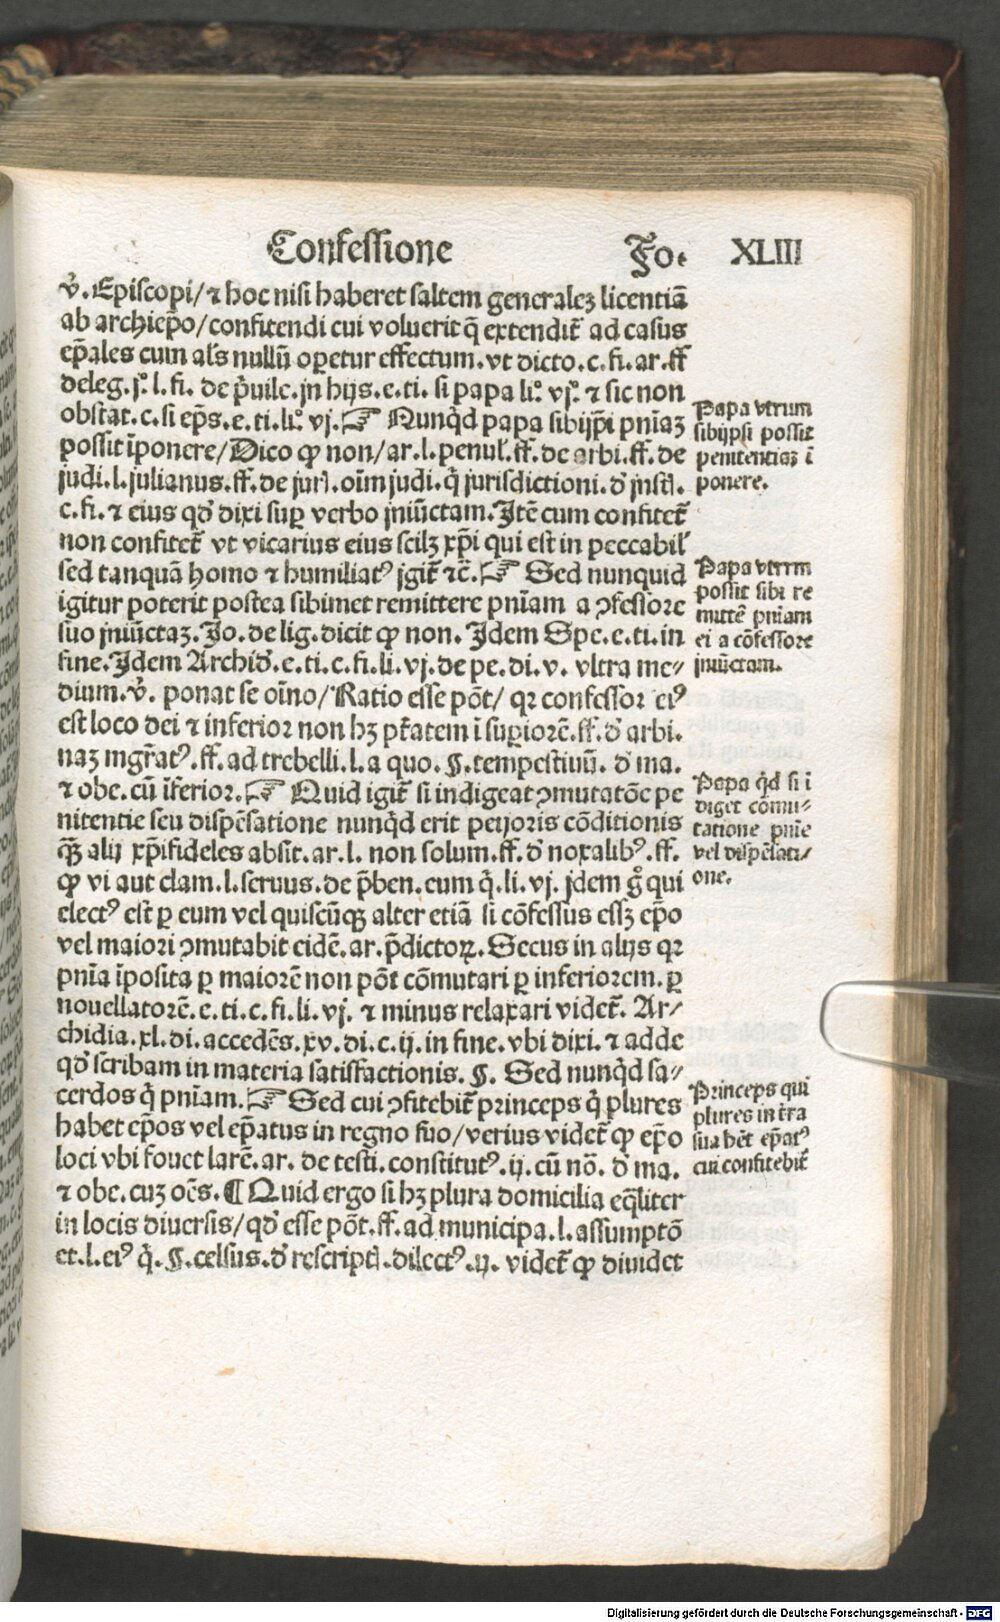 Confessione Fo. XLIII
v̾. Episcopi/ ⁊ hoc nisi haberet saltem generalez licentiā
ab archiep̄o/ confitendi cui voluerit q̄ extendit᷑ ad casus
ep̄ales cum als̄ nullū oꝑetur effectum. vt dicto. c. fi. ar. ff
deleg. j°. l. fi. de p̄uile. jn hijs. e. ti. si papa li°. vj°. ⁊ sic non
obstat. c. si ep̄s. e. ti. li°. vj. ☞ Nunq̇d papa sibijp̄i pn̄iaz
possit īponere/ Dico ꝙ non/ ar. l. penul̄. ff. de arbi. ff. de
judi. l. julianus. ff. de juri. oīm judi. q̇ jurisdictioni. d̄ jnsti.
c. fi. ⁊ eius qd̄ dixi suꝑ verbo jniūctam. Jtē cum confitet᷑
non confitet᷑ vt vicarius eius scilz xp̄i qui est in peccabil̄
sed tanquā homo ⁊ humiliatꝰ jgit᷑ ⁊c̄. ☞ Sed nunquid
igitur poterit postea sibimet remittere pn̄iam a ↄfessore
suo jniūctaz. Jo. de lig. dicit ꝙ non. Jdem Spe. e. ti. in
fine. Jdem Archid̄. e. ti. c. fi. li. vj. de pe. di. v. vltra me⸗
dium. v̾. ponat se oīno/ Ratio esse pōt/ qꝛ confessor eiꝰ
est loco dei ⁊ inferior non hꝫ pt̄atem ī suꝑiorē. ff. d̄ arbi.
naz mgr̄atꝰ. ff. ad trebelli. l. a quo. §. tempestiuū. d̄ ma.
⁊ obe. cū īferior. ☞ Quid igit᷑ si indigeat ↄmutatōe pe
nitentie seu dispēsatione nunq̇d erit peijoris cōditionis
qꝫ alij xp̄ifideles absit. ar. l. non solum. ff. d̄ noxalibꝰ. ff.
ꝙ vi aut clam. l. seruus. de p̄ben. cum q̇. li. vj. jdem gͦ qui
electꝰ est ꝑ eum vel quiscūqꝫ alter etiā si cōfessus essꝫ ep̄o
vel maiori ↄmutabit eidē. ar. p̄dictoꝝ. Secus in alijs qꝛ
pn̄ia īposita ꝑ maiorē non pōt cōmutari ꝑ inferiorem. ꝑ
nouellatorē. e. ti. c. fi. li. vj. ⁊ minus relaxari videt᷑. Ar⸗
chidia. xl. di. accedēs. xv. di. c. ij. in fine. vbi dixi. ⁊ adde
qd̄ scribam in materia satisfactionis. §. Sed nunq̇d sa⸗
cerdos q̇ pn̄iam. ☞ Sed cui ↄfitebit᷑ princeps q̇ plures
habet ep̄os vel ep̄atus in regno suo/ verius videt᷑ ꝙ ep̄o
loci vbi fouet larē. ar. de testi. constitutꝰ. ij. cū nō. d̄ ma.
⁊ obe. cuz oēs. ¶ Quid ergo si hꝫ plura domicilia eq̄liter
in locis diuersis/ qd̄ esse pōt. ff. ad municipa. l. assumptō
et. l. eiꝰ q̇. §. celsus. d̄ rescripti. dilectꝰ. ij. videt᷑ ꝙ diuidet
Papa vtrum
sibijpsi possit
penitentiaz ī
ponere.
Papa vtrum
possit sibi re
mittē pn̄iam
ei a cōfessore
jniūctam.
Papa q̇d si ī
diget cōmu⸗
tatione pn̄ie
vel dispēsati⸗
one.
Princeps qui
plures in t̄ra
sua hēt ep̄atꝰ
cui confitebit᷑
Digitalisierung gefördert durch die Deutsche Forschungsgemeinschaft - DFG